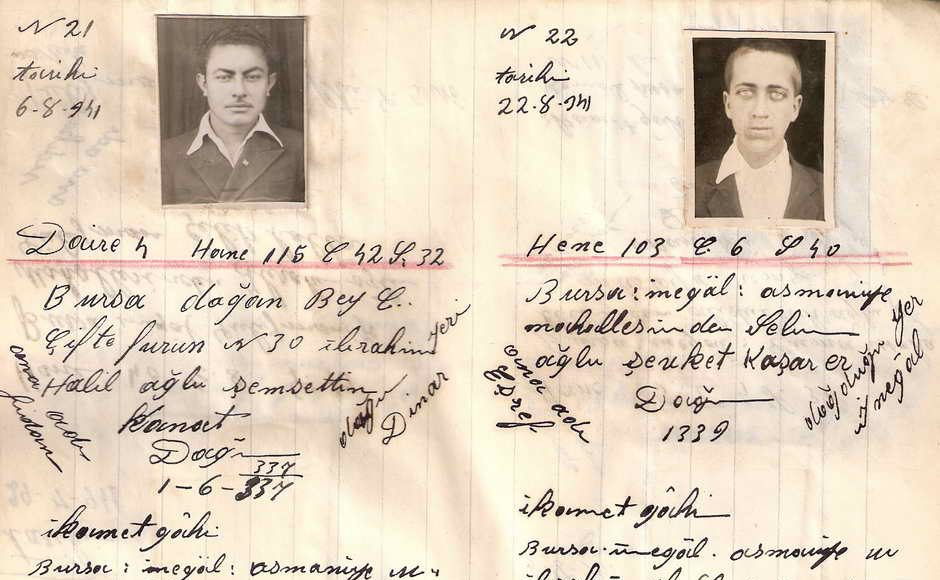 N 21
tarihi
6-8-941
Daire 4 Hane 115 C 42 S. 32
Bursa doğan Bey C.
Çifte furun N 30 ibrahim
Halil oğlu şemsettin
Kanat
Doğu
337
1-6-337
ana adı
Fidan
doğu yeri
Dinar
ikamet gâhi
Bursa: inegöl: osmaniye
N 22
tarihi
22-8-941
Hene 103 C. 6 S 40
Bursa: inegöl: osmaniye
mahallesinden Selim
oğlu şevket Kaşar er
Doğu
1339
ana adı
Eşref
doğduğu yer
inegöl
ikamet gâhi
Bursa. inegöl. osmaniye